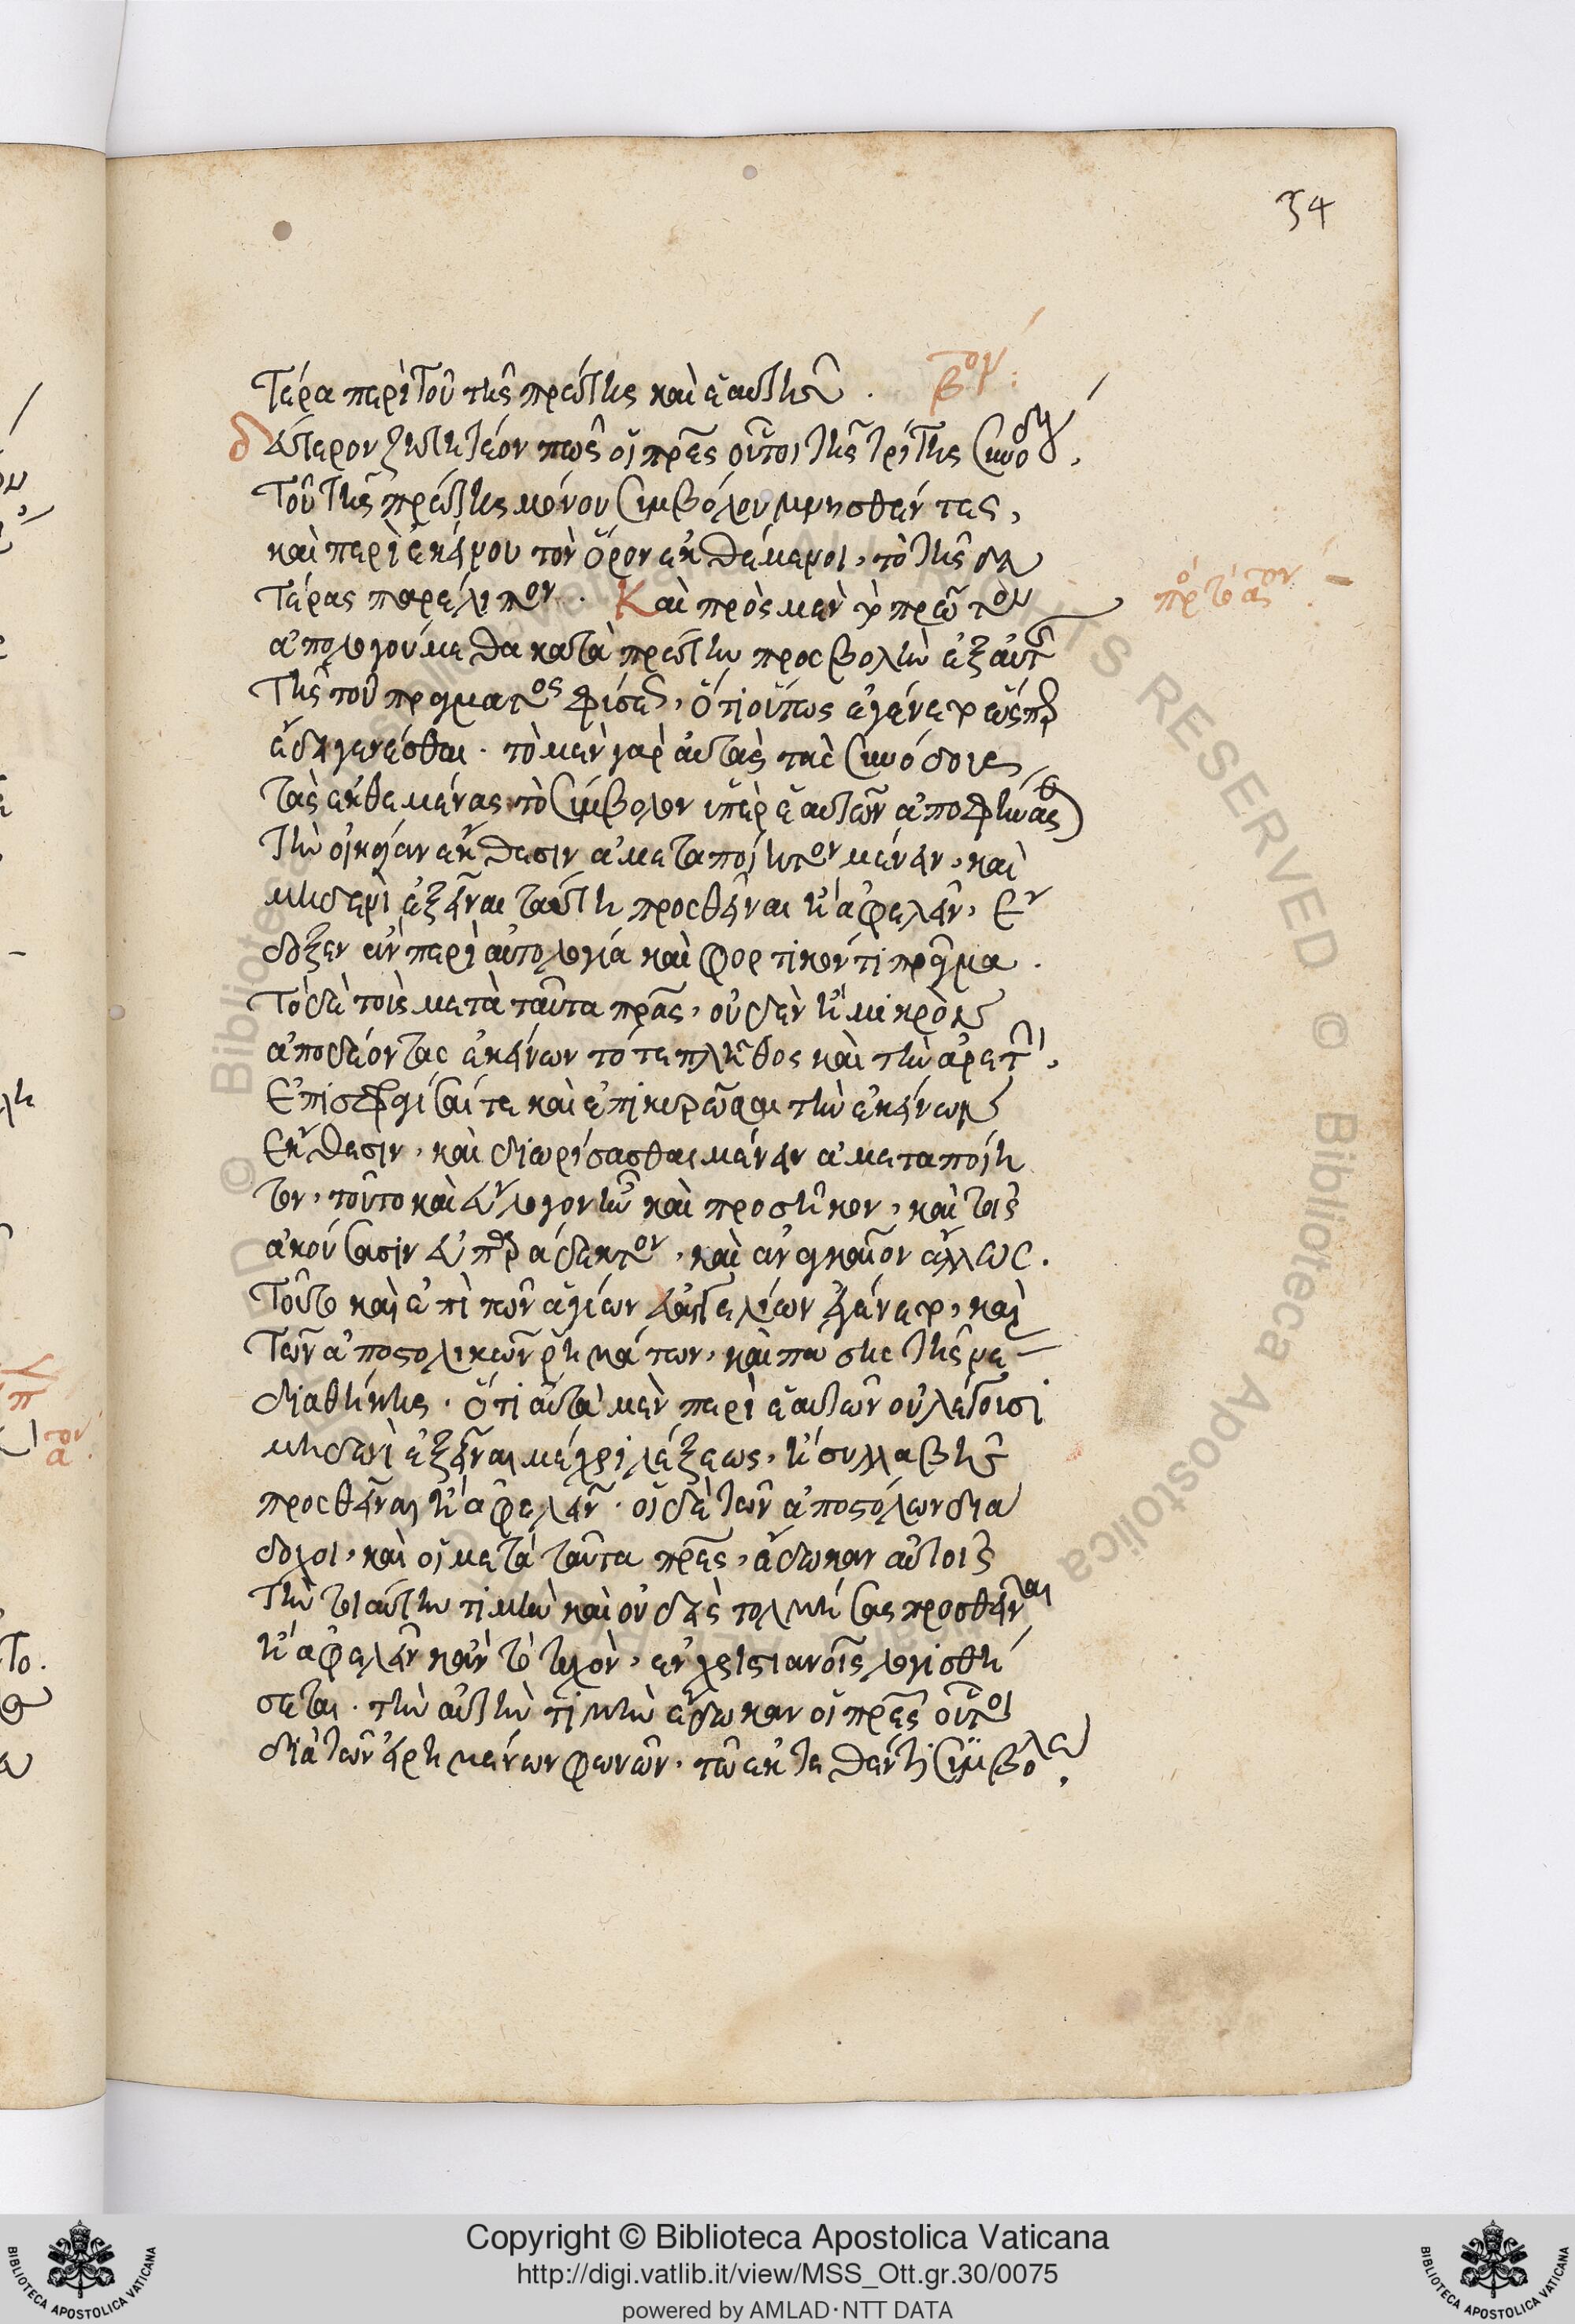 34
τέρα περὶ τοῦ τῆς πρώτης καὶ ἑαυτῆς. βον:
δεύτερον ζητητέον πῶς οἱ πρες οὗτοι τῆς τρίτης συνόδου,
τοῦ τῆς πρώτης μόνου συμβόλου μνησθέντες,
καὶ περὶ ἐκείνου τὸν ὅρον ἐκθέμενοι, τὸ τῆς δευ
τέρας παρέλιπον. Καὶ πρὸς μὲν τὸ πρῶτον
πρὸς τὸ αον
ἀπολογούμεθα κατὰ πρώτην προσβολὴν ἐξ αὐτῆς
τῆς τοῦ πράγματος φύσεως, ὅτι οὕτως ἐγένετο ὥσπερ
ἔδει γενέσθαι. τὸ μὲν γὰρ αὐτὰς τὰς συνόδους
τὰς ἐκθεμένας τὸ σύμβολον ὑπὲρ ἑαυτῶν ἀποφήνασθαι
τὴν οἰκείαν ἔκθεσιν ἀμεταποίητον μένειν, καὶ
μηδενὶ ἐξεῖναι ταύτῃ προσθεῖναι ἢ ἀφελεῖν, ἔ
δοξεν ἂν περιαυτολογία καὶ φορτικόν τι πρᾶγμα.
Τὸ δὲ τοὺς μετὰ ταῦτα πρας, οὐδὲν ἢ μικρὸν
ἀποδέοντας ἐκείνων τό τε πλῆθος καὶ τὴν ἀρετήν,
ἐπισφραγίσαι τε καὶ ἐπικυρῶσαι τὴν ἐκείνων
ἔκθεσιν, καὶ διωρίσασθαι μένειν ἀμεταποίη
τον, τοῦτο καὶ εὔλογον ἦν καὶ προσῆκον, καὶ τοῖς
ἀκούσασιν εὐπαράδεκτον, καὶ ἀναγκαῖον ἄλλως.
Τοῦτο καὶ ἐπὶ τῶν ἁγίων εὐαγγελίων ἐγένετο, καὶ
τῶν ἀποστολικῶν ῥημάτων, καὶ πάσης τῆς νέας
διαθήκης. ὅτι αὐτὰ μὲν περὶ ἑαυτῶν οὐ λέγουσι
μηδενὶ ἐξεῖναι μέχρι λέξεως, ἢ συλλαβῆς
προσθεῖναι ἢ ἀφελεῖν. οἱ δὲ τῶν ἀποστόλων διά
δοχοι, καὶ οἱ μετὰ ταῦτα πρες, ἔδωκαν αὐτοῖς
τὴν τοιαύτην τιμὴν καὶ οὐδεὶς τολμήσας προσθεῖναι
ἢ ἀφελεῖν κἂν τὸ τυχὸν, ἐν χριστιανοῖς λογισθή
σεται. τὴν αὐτὴν τιμὴν ἔδωκαν οἱ πρες οὗτοι
διὰ τῶν εἰρημένων φωνῶν, τῷ ἐκτεθέντι συμβόλῳ,